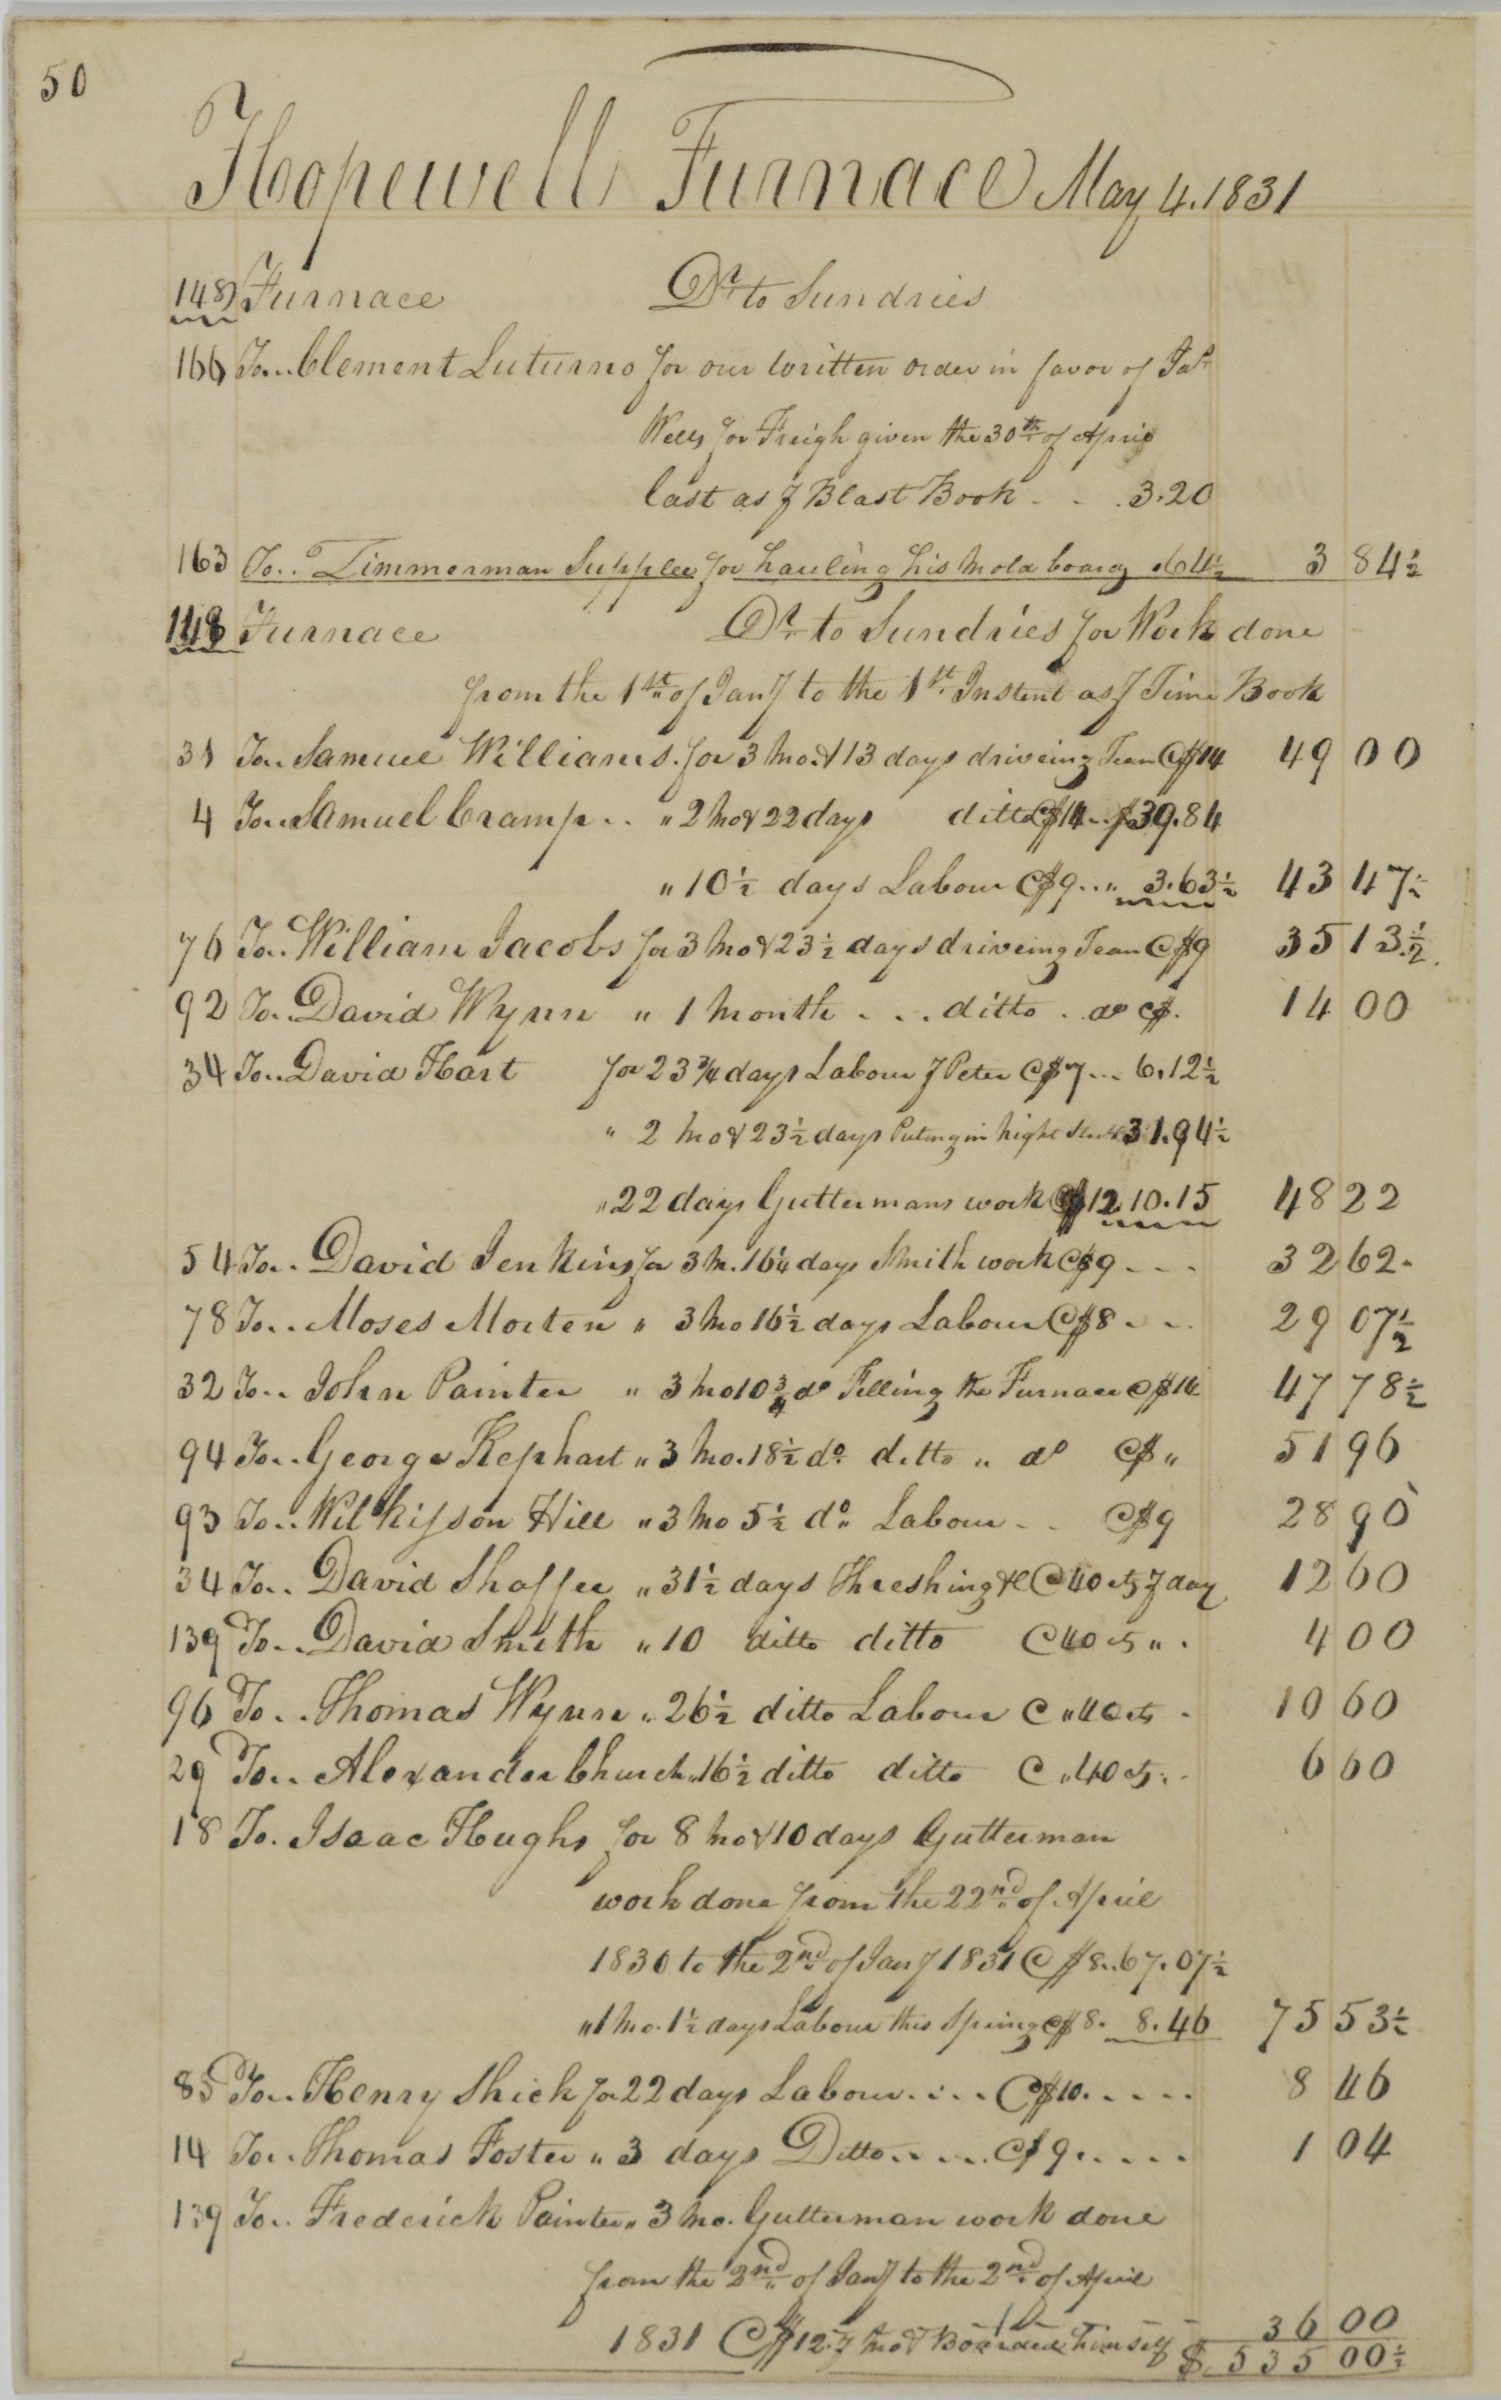 50
Hopewell Furnace May 4. 1831
148 Furnace Dr to Sundries
166 To.. Clement Luturno for our written order in favor of Jas
Wells for Freigh given the 30th of April
last as P Blast Book - - . 3.20
163 To.. Zimmerman Supplee for hauling his mold board 64½ 3 84½
148 Furnace Dr to Sundries for Work done
from the 1st of Jany to the 1st Instent as P Time Book
31 To.. Samuel Williams. for 3 mo & 13 days driveing Team @$14 49 00
4 To.. Samuel Cramp.. " 2 mo & 22 days ditto @$14.. $39.84
" 10½ days Labour @$9.. " 3.63½ 43 47½
76 To.. William Jacobs for 3 mo & 23½ days driveing Team @$9 35 13½
92 To.. David Wynn " 1 month . . . ditto . do @$. 14 00
34 To.. David Hart for 23¾ days Labour P Peter @$7... 6.12½
" 2 mo & 23½ days Puting in night 31.94½
" 22 days Guttermans work @$12. 10.15 48 22
54 To.. David Jenkins for 3 m. 16¼ days Smith work @$9 - - - 32 62.
78 To.. Moses Morten " 3 mo 16½ days Labour @$8 - - . 29 07½
32 To.. John Painter " 3 mo 10¾ do Filling the Furnace @$14 47 78½
94 To.. George Kephart " 3 mo. 18½ do ditto " do @$ " 51 96
93 To.. Wilkisson Hill " 3 mo 5½ do Labour - . @$9 28 90
34 To.. David Shaffer " 31½ days Threshing &c @ 40 cts P day 12 60
139 To.. David Smith " 10 ditto ditto @ 40 cts " . 4 00
96 To.. Thomas Wynn " 26½ ditto Labour @ " 40 cts . 10 60
29 To.. Alexander Church " 16½ ditto ditto @ " 40 cts . . 6 60
18 To. Isaac Hughs for 8 mo & 10 days Gutterman
work done from the 22nd of April
1830 to the 2nd of Jany 1831 @ $8.. 67.07½
" 1 mo. 1½ days Labour this Spring @$8. 8.46 75 53½
85 To.. Henry Shick for 22 days Labour. . . . @$10. . . . . 8 46
14 To.. Thomas Foster " 3 days Ditto. . . . . @$9. . . . . 1 04
139 To.. Frederick Painter " 3 mo. Gutterman work done
from the 2nd of Jany to the 2nd of April
1831 @$12 P mo & Boarded himself 36 00
$ 535 00½